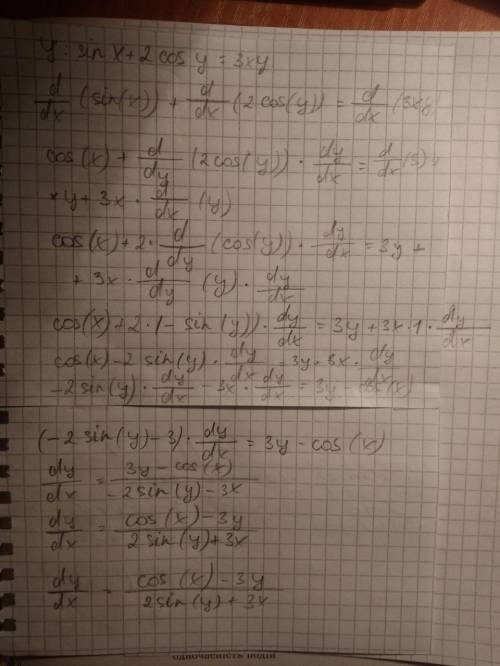 y: sin x + 2 cos y = 3xy
d/dx (sin(x)) + d/dx (2 cos(y)) = d/dx (3xy)
cos(x) + d/dy (2cos(y)) · dy/dx = d/dx (3)
× y + 3x · d/dx (y)
cos(x) + 2 · d/dy (cos(y)) · dy/dx = 3y +
+ 3x · d/dy (y) · dy/dx
cos(x) + 2 · (- sin(y)) · dy/dx = 3y + 3x · 1 · dy/dx
cos(x) - 2 sin(y) · dy/dx = 3y · 3x · dy/dx
-2 sin(y) · dy/dx - 3x · dy/dx = 3y - cos(x)
(-2 sin(y) - 3) · dy/dx = 3y - cos(x)
dy/dx = 3y - cos(x) / -2 sin(y) - 3x
dy/dx = cos(x) - 3y / 2 sin(y) + 3x
dy/dx = cos(x) - 3y / 2 sin(y) + 3x
одночасність подій